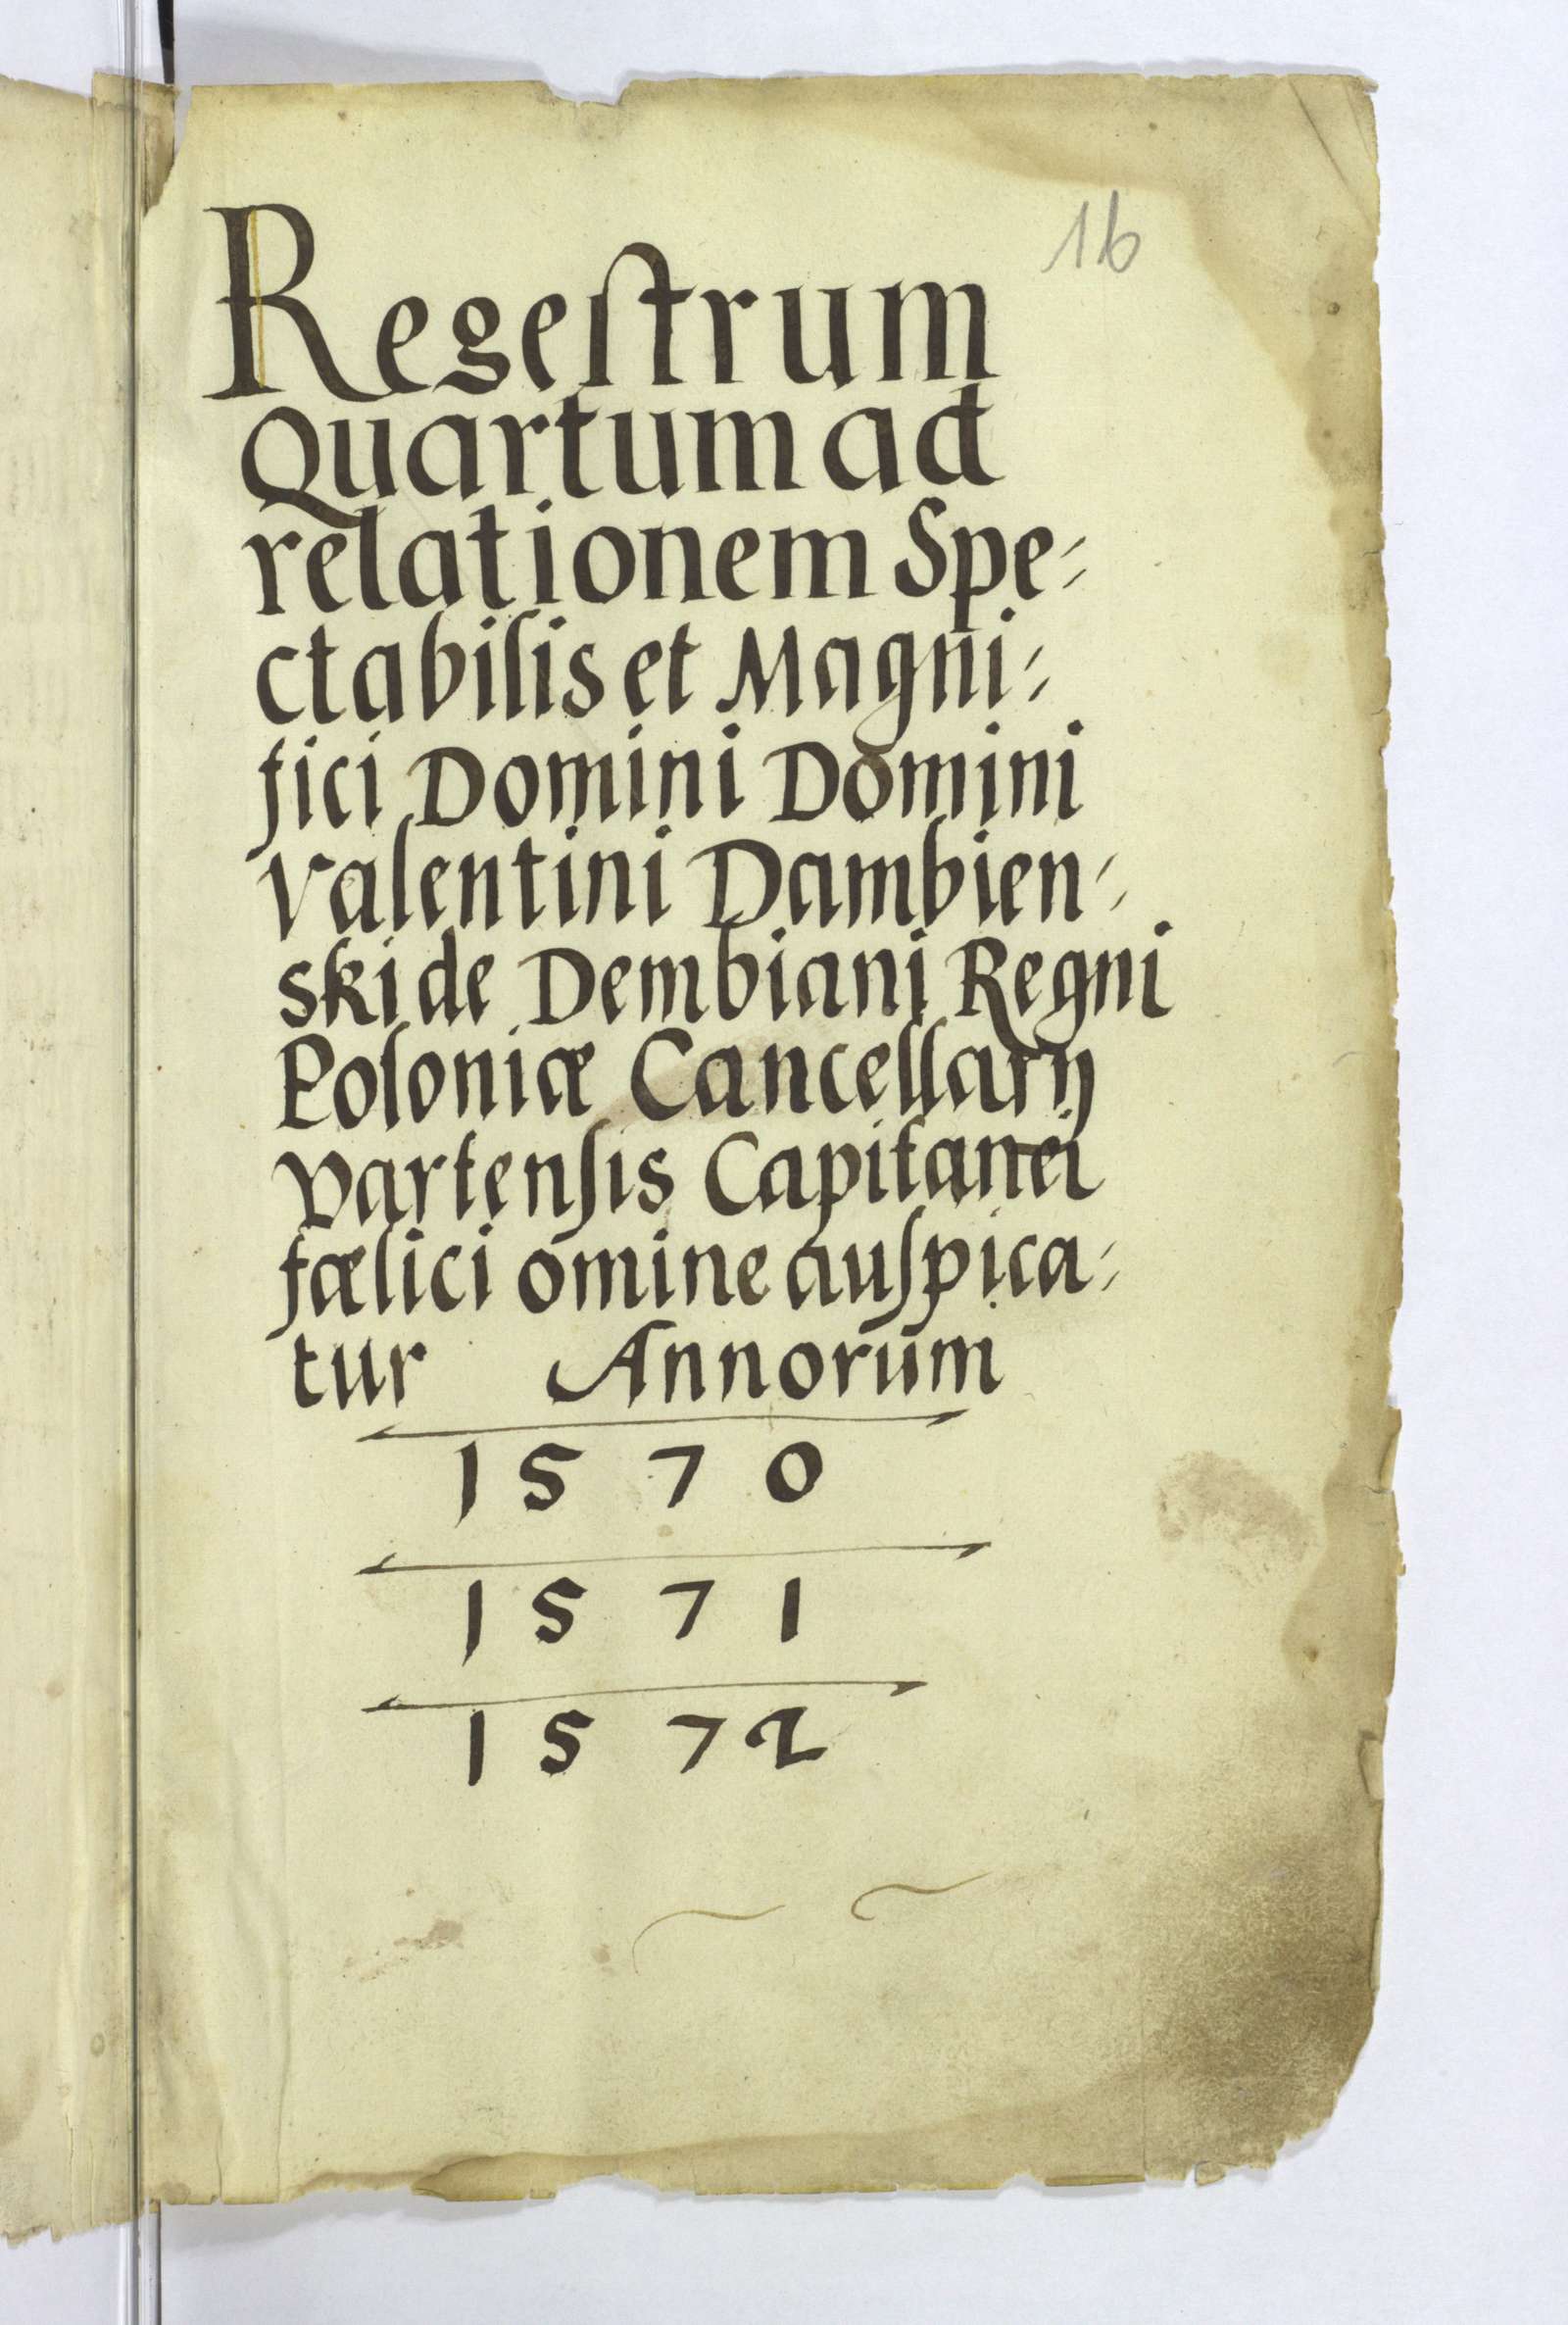 16
Regestrum
Quartum ad
relationem Spe-
ctabilis et Magni-
fici Domini Domini
Valentini Dambien-
ski de Dembiani Regni
Poloniæ Cancellarij
Vartensis Capitanei
fælici omine auspica-
tur Annorum
1570
1571
1572